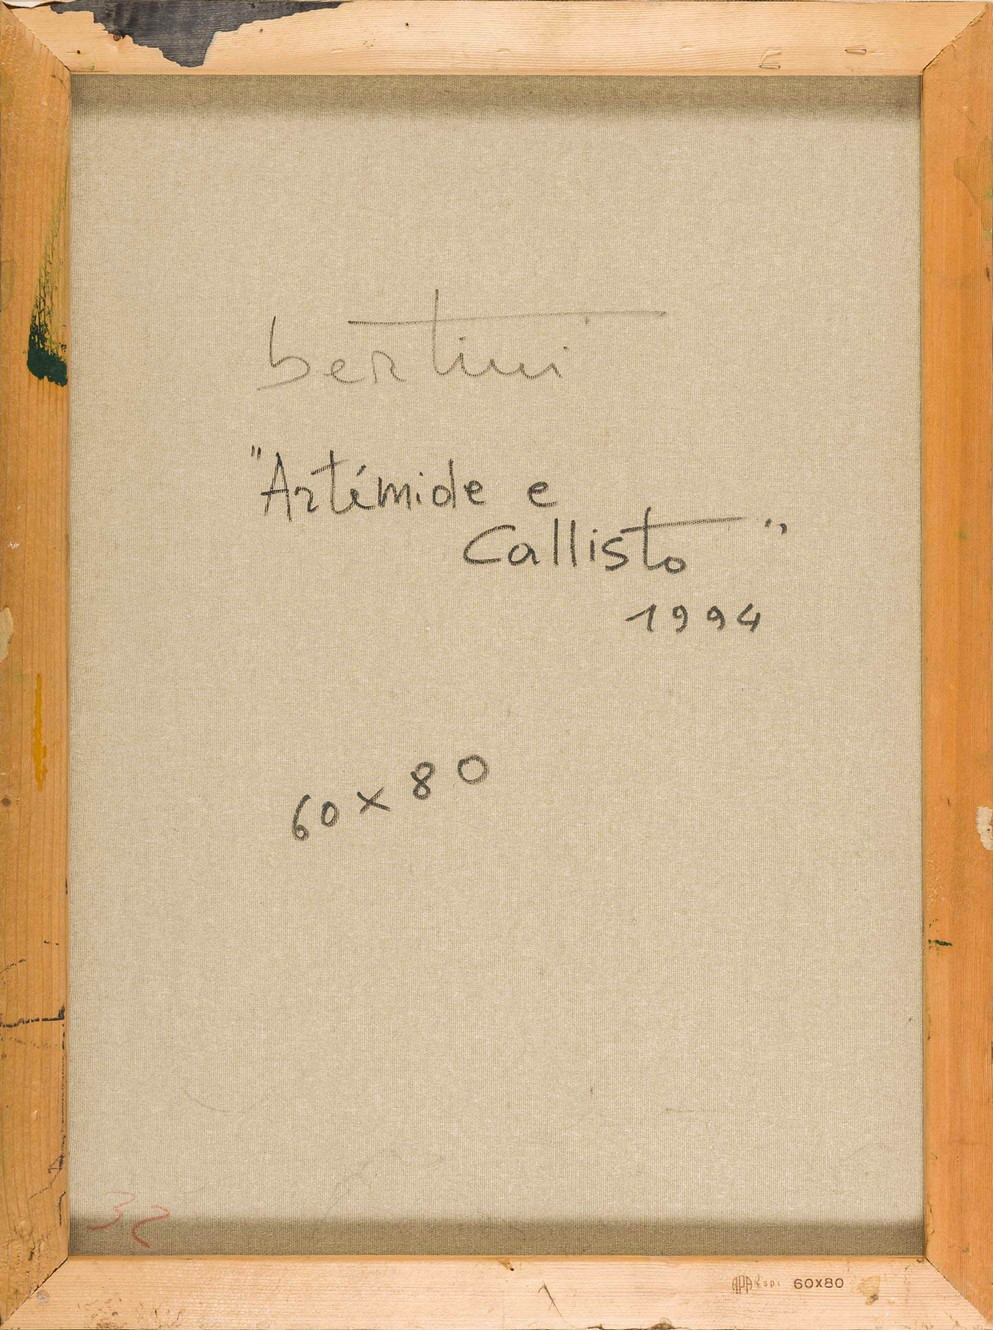 bertini
"Artémide e
Callisto"
1994
60 x 80
32
60X80